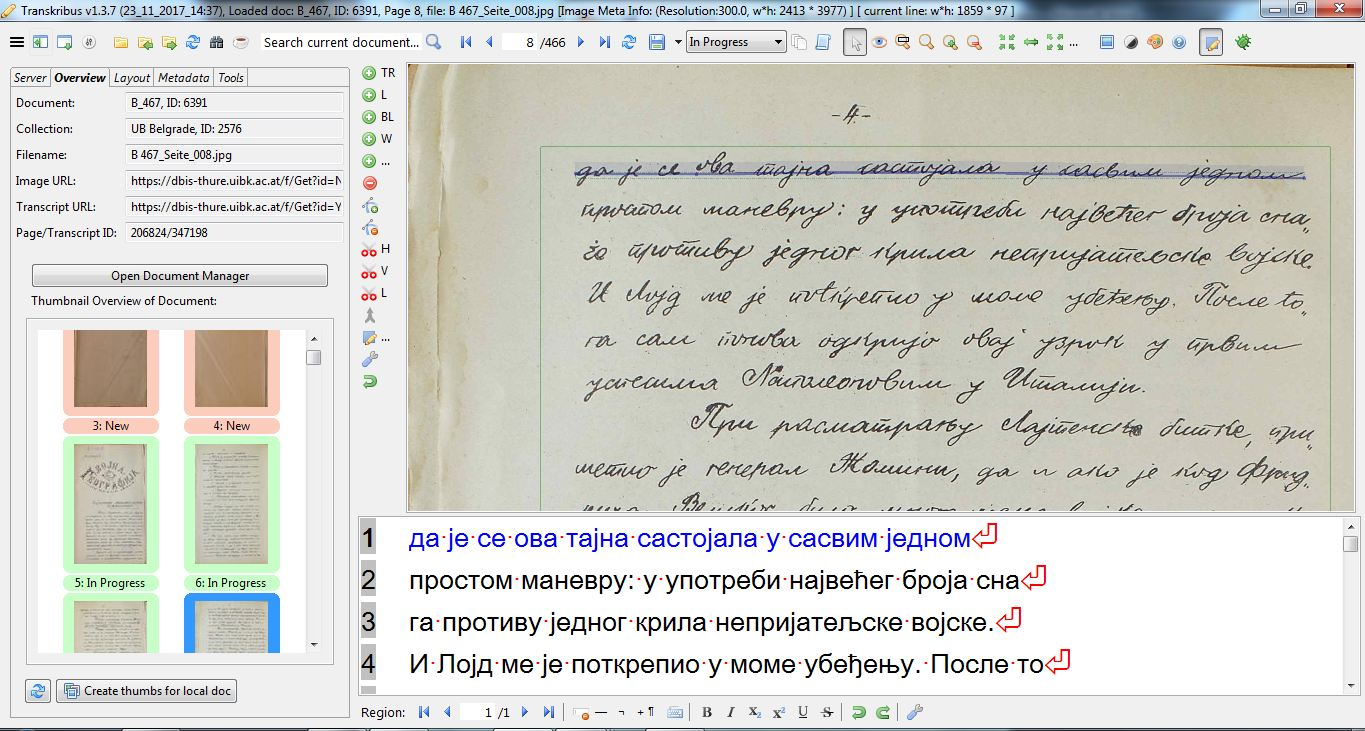 Transkribus v1.3.7 (23_11_2017_14:37), Loaded doc: B_467, ID: 6391, Page 8, file: B 467_Seite_008.jpg [Image Meta Info: (Resolution:300.0, w*h: 2413 * 3977) ] [ current line: w*h: 1859 * 97 ]
Search current document...
8 /466
In Progress
...
Server Overview Layout Metadata Tools
Document: B_467, ID: 6391
Collection: UB Belgrade, ID: 2576
Filename: B 467_Seite_008.jpg
Image URL: https://dbis-thure.uibk.ac.at/f/Get?id=N
Transcript URL: https://dbis-thure.uibk.ac.at/f/Get?id=Y
Page/Transcript ID: 206824/347198
Open Document Manager
Thumbnail Overview of Document:
3: New
4: New
ВОЈНА
ГЕОГРАФИЈА
5: In Progress
6: In Progress
Create thumbs for local doc
TR
L
BL
W
...
H
V
L
...
-4.-
да је се ова тајна састојала у сасвим једном
простом маневру: у употреби највећег броја сна-
га противу једног крила непријатељске војске.
И Лојд ме је поткрепио у моме убеђењу. После то-
га сам поново одкријо овај узрок у првим
успесима Наполеоновим у Италији.
При расматрању Лајтенске битке, при-
метио је генерал Жомини, да и ако је код Фрид-
1 да је се ова тајна састојала у сасвим једном
2 простом маневру: у употреби највећег броја сна
3 га противу једног крила непријатељске војске.
4 И Лојд ме је поткрепио у моме убеђењу. После то
Region: 1 /1
B I X₂ X² U S